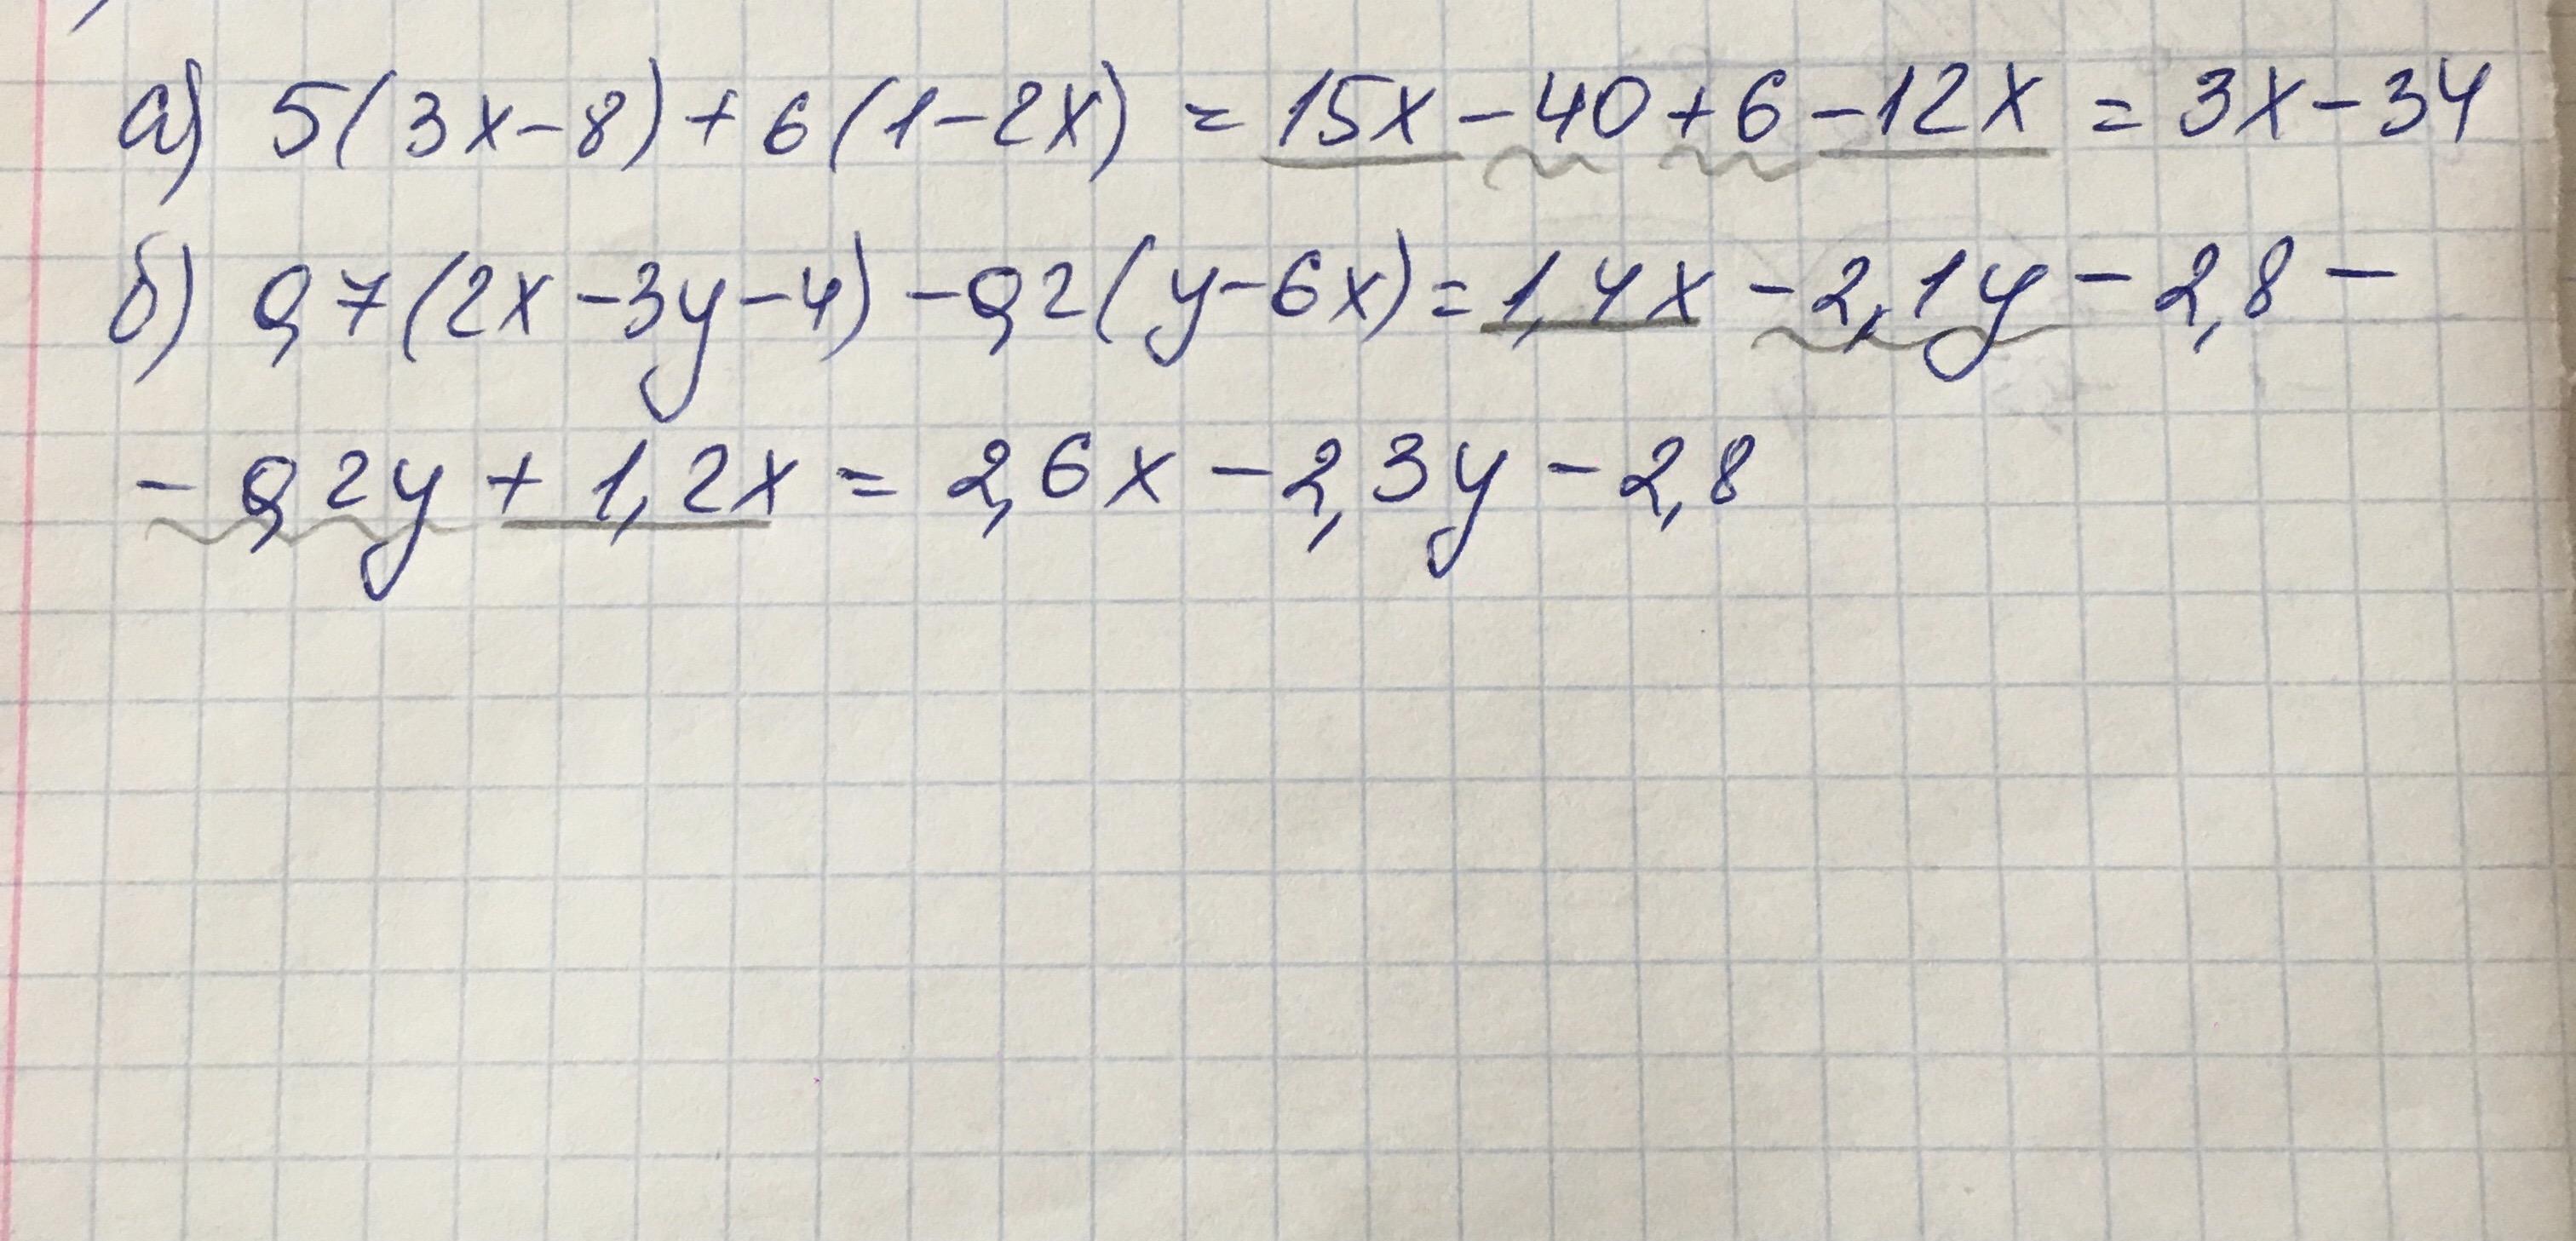 а) 5(3x-8)+6(1-2x) = 15x-40+6-12x = 3x-34
б) 0,7(2x-3y-4)-0,2(y-6x)=1,4x-2,1y-2,8-
-0,2y+1,2x = 2,6x-2,3y-2,8